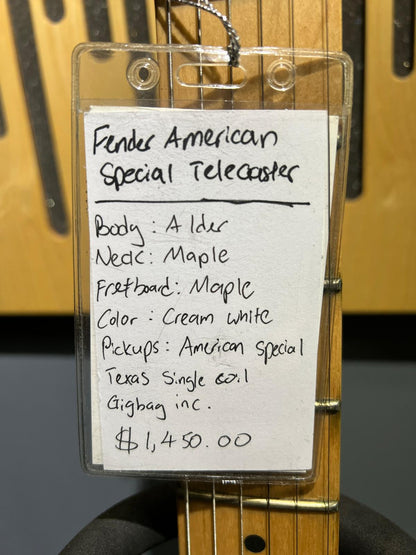 Fender American
Special Telecaster
Body: Alder
Neck: Maple
Fretboard: Maple
Color: Cream white
Pickups: American special
Texas Single coil
Gigbag inc.
$1,450.00